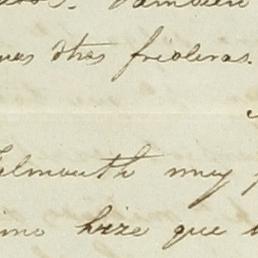 Tambien
otras frioleras.
Falmouth muy
hize que